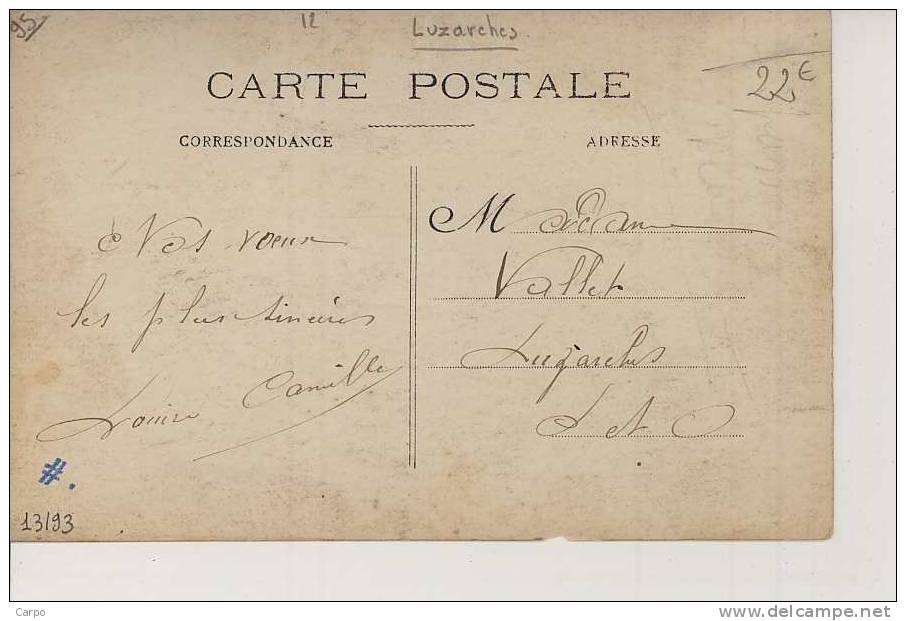 95
12
Luzarches
22€
CARTE POSTALE
CORRESPONDANCE
ADRESSE
Nos voeux
les plus sincères
Louise Camille
Madame
Vallet
Luzarches
S et O
#.
13/93
Carpo
www.delcampe.net